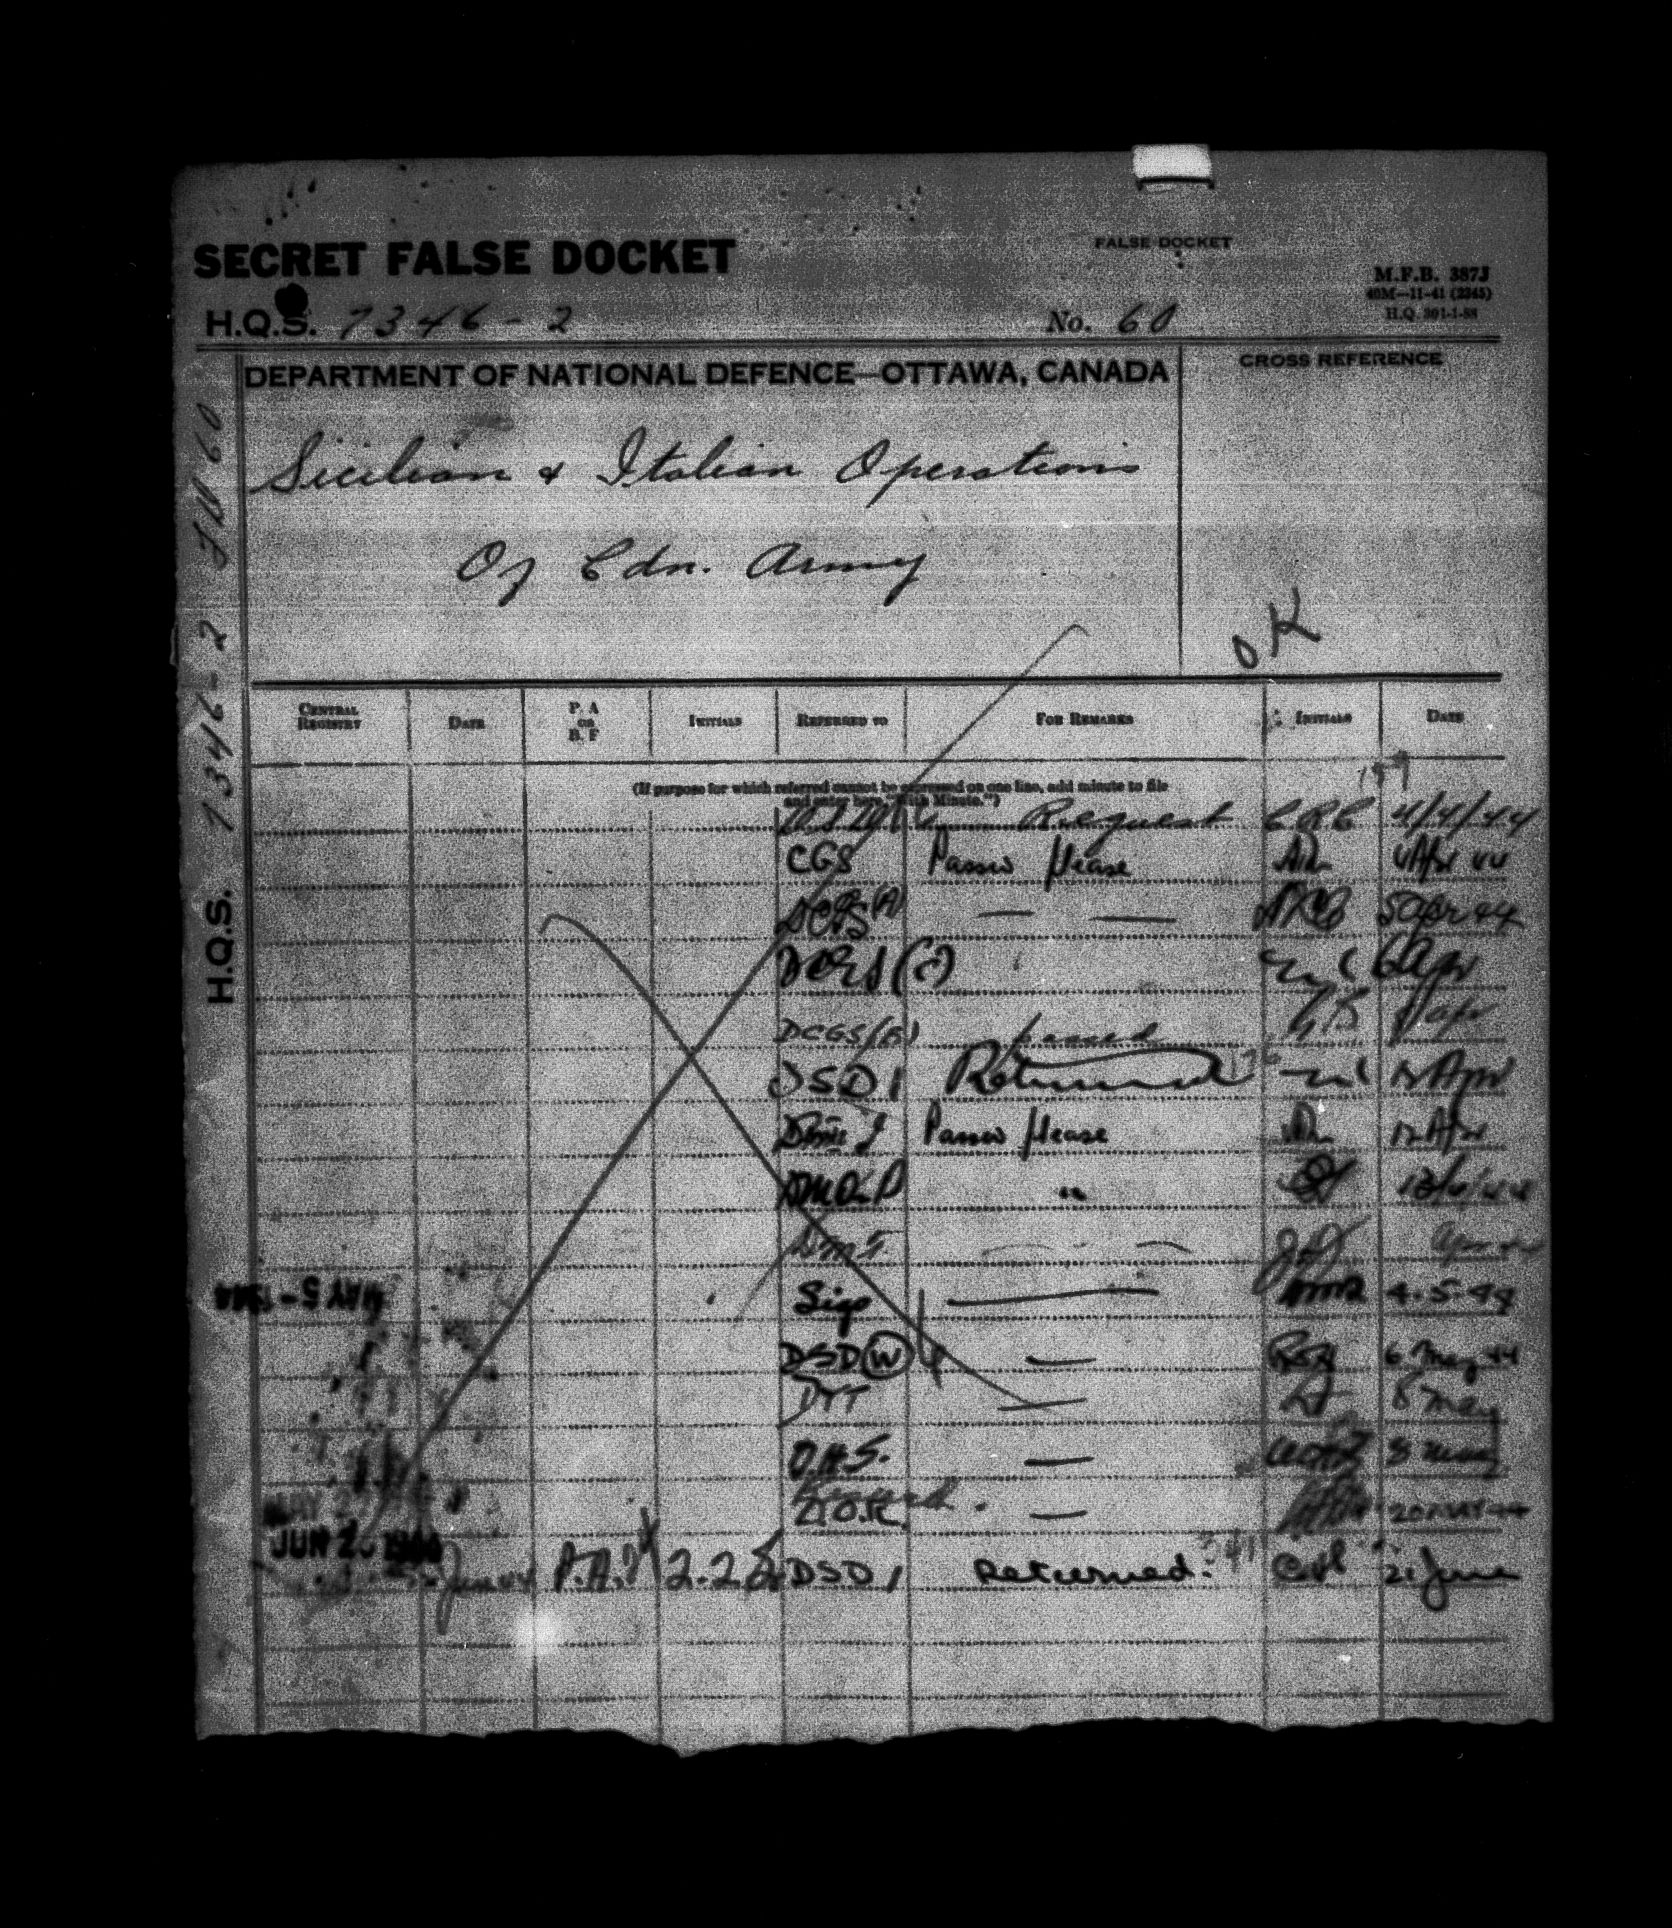 SECRET FALSE DOCKET
FALSE DOCKET
M.F.B. 387J
40M—11-41 (2245)
H.Q. 301-1-88
H.Q.S. 7346-2
No. 60
DEPARTMENT OF NATIONAL DEFENCE—OTTAWA, CANADA
CROSS REFERENCE
Sicilian & Italian Operations
Of Cdn. Army
OK
H.Q.S. 7346-2 FD 60
CENTRAL REGISTRY DATE P. A OR B. F INITIALS REFERRED TO FOR REMARKS INITIALS DATE
(If purpose for which referred cannot be expressed on one line, add minute to file
and enter here, "With Minute.")
Request CRC 4/4/44
CGS Passed please 4 Apr 44
DCGS (A) — — 5 Apr 44
DCGS (C) 6 Apr
DCGS (B) passed Apr
DSD 1 Returned 12 Apr
Passed please 12 Apr
DMO&P "
DMT Apr
MAY 5 - 1944 Sigs — 4.5.44
DSD (W) — 6 May 44
— 8 May
D.H.S. —
MAY — 20 MAY 44
JUN 1944 June P.A. DSD 1 Returned. 21 June